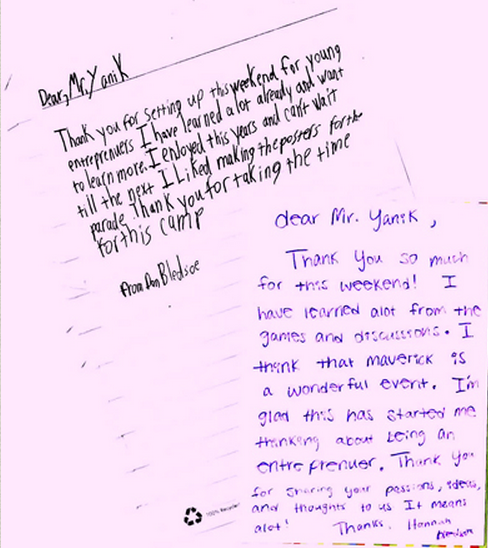 Dear, Mr. Yanik
Thank you for setting up this weekend for young
entreprenuers I have learned alot already and want
to learn more. I enjoyed this years and can't wait
till the next I Liked making the posters for the
parade Thank you for taking the time
for this camp
from Dan Bledsoe
dear Mr. Yanik,
Thank You so much
for this weekend! I
have learned alot from the
games and discussions. I
think that maverick is
a wonderful event. I'm
glad this has started me
thinking about being an
entreprenuer. Thank you
for sharing your passions, ideas,
and thoughts to us It means
alot! Thanks, Hannah
100% Recycled